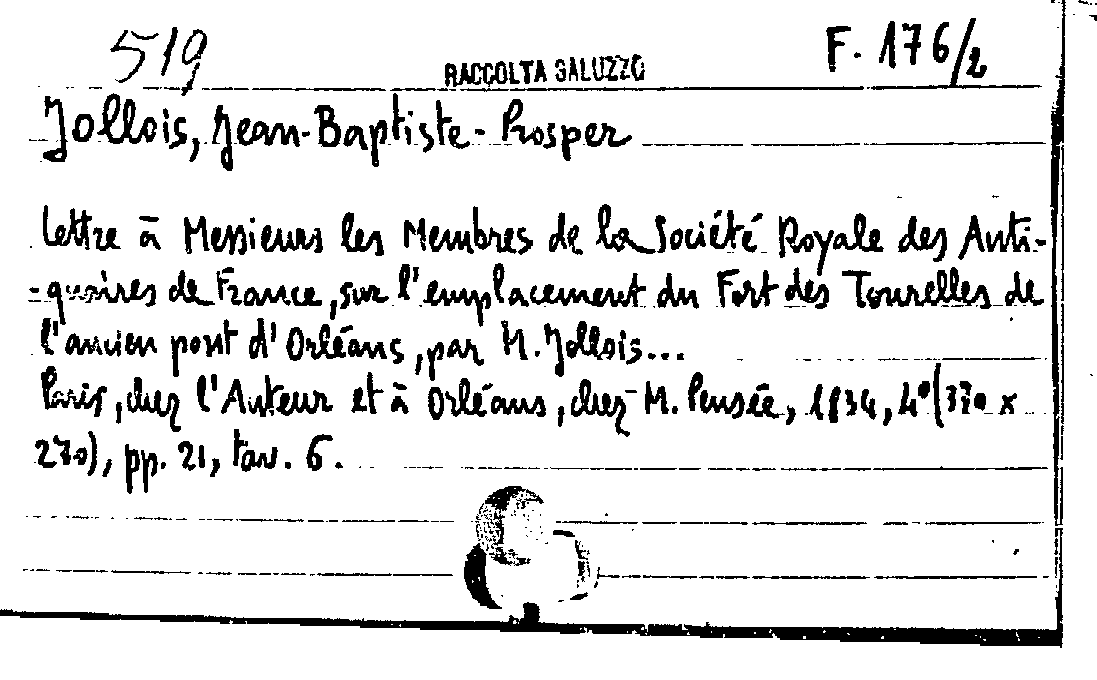 519 RACCOLTA SALUZZO F. 176/2
Jollois, Jean-Baptiste-Prosper
Lettre à Messieurs les Membres de la Société Royale des Anti-
-quaires de France, sur l'emplacement du Fort des Tourelles de
l'ancien pont d'Orléans, par M. Jollois...
Paris, chez l'Auteur et à Orléans, chez M. Pensée, 1834, 4° (370 x
270), pp. 21, tav. 6.